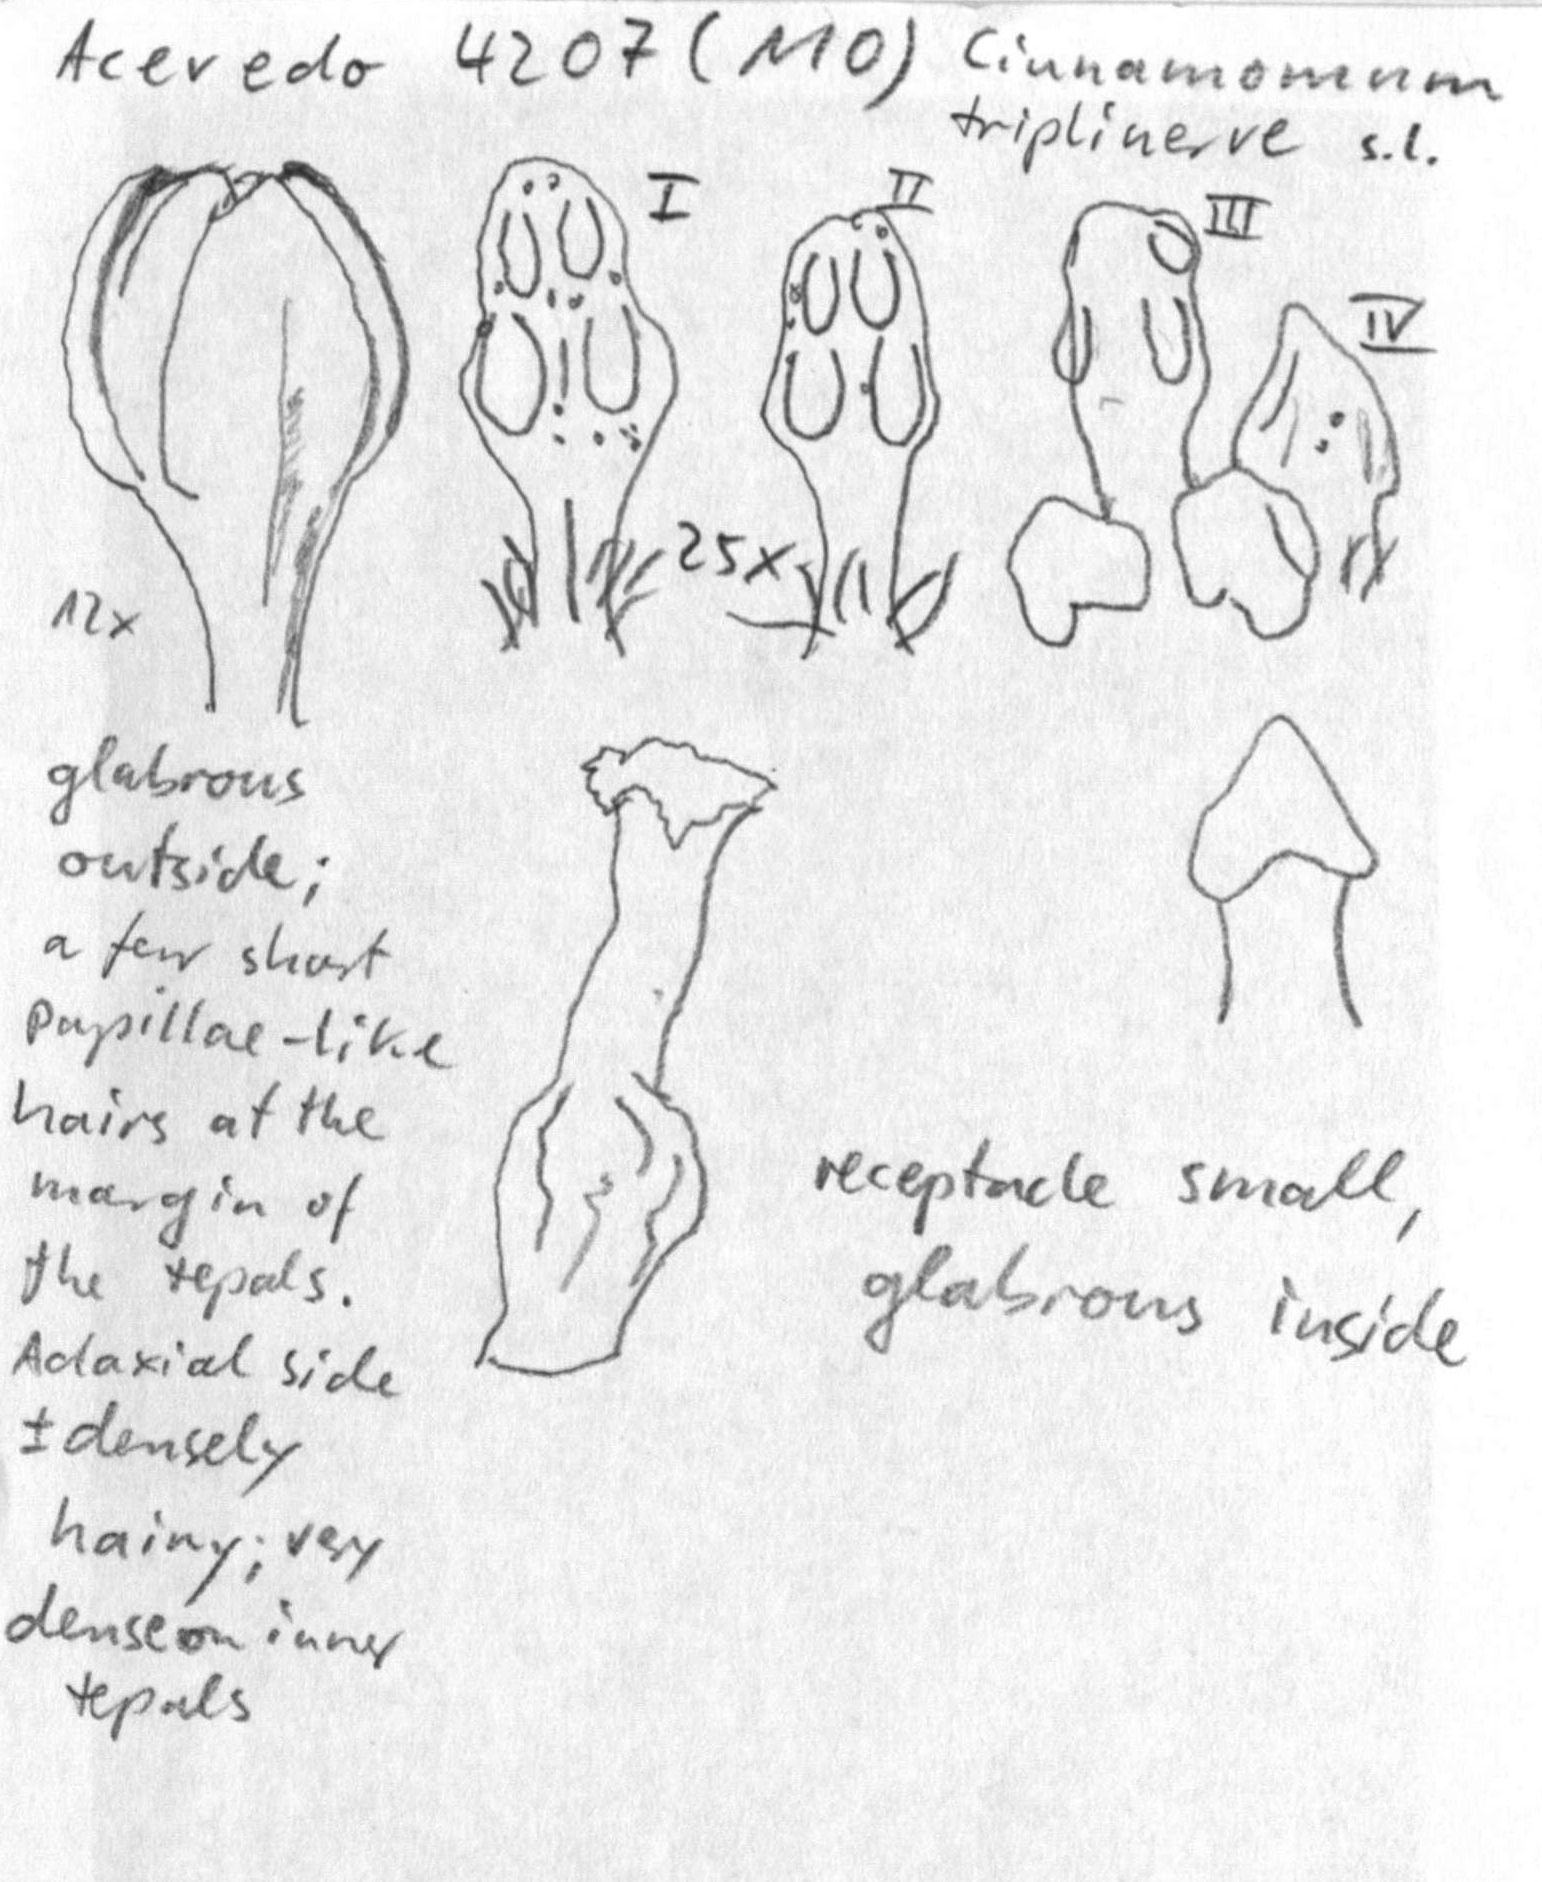 Acevedo 4207 (MO) Cinnamomum
triplinerve s.l.
I II III IV
12x
25x
glabrous
outside;
a few short
papillae-like
hairs at the
margin of
the tepals.
Adaxial side
± densely
hairy; very
dense on inner
tepals
receptacle small,
glabrous inside